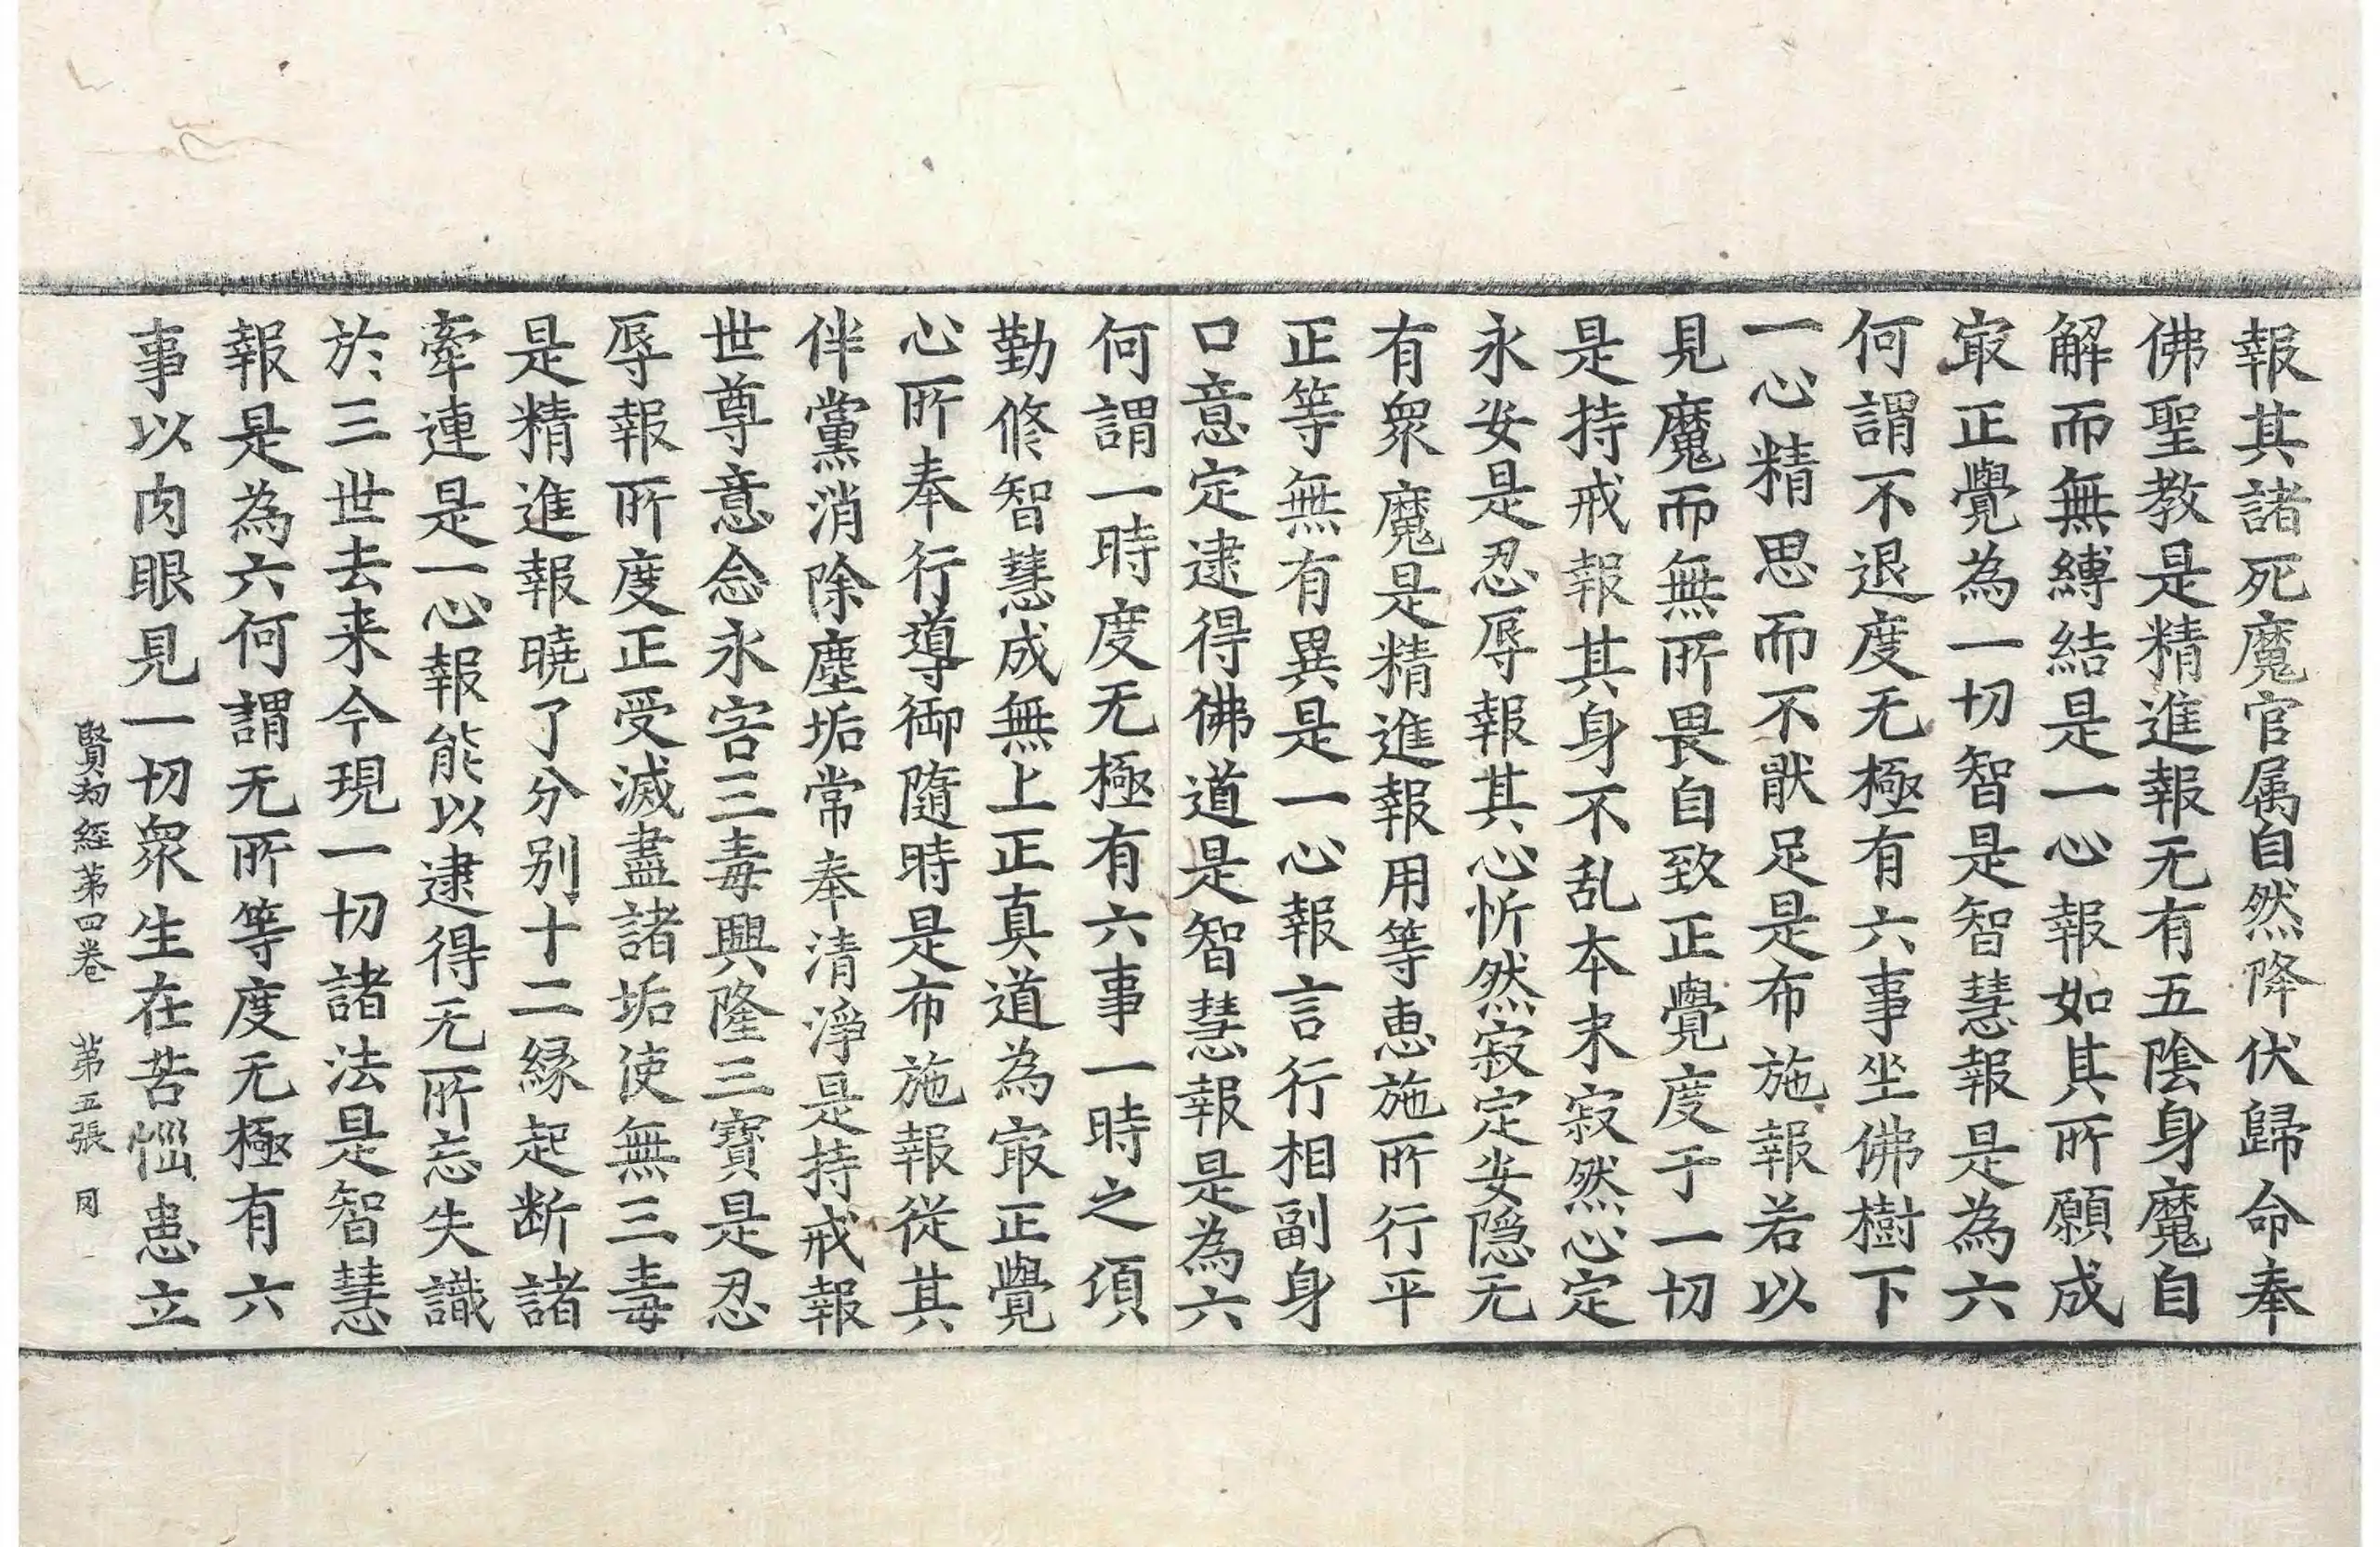 報其諸死魔官属自然降伏歸命奉
佛聖教是精進報无有五陰身魔自
解而無縛結是一心報如其所願成
㝡正覺為一切智是智慧報是為六
何謂不退度无極有六事坐佛樹下
一心精思而不猒足是布施報若以
見魔而無所畏自致正覺度于一切
是持戒報其身不乱本末寂然心定
永安是忍辱報其心忻然寂定安隱无
有衆魔是精進報用等惠施所行平
正等無有異是一心報言行相副身
口意定逮得佛道是智慧報是為六
何謂一時度无極有六事一時之頃
勤修智慧成無上正真道為㝡正覺
心所奉行導御隨時是布施報從其
伴黨消除塵垢常奉清淨是持戒報
世尊意念永害三毒興隆三寶是忍
辱報所度正受滅盡諸垢使無三毒
是精進報曉了分別十二緣起断諸
牽連是一心報能以逮得无所忘失識
於三世去来今現一切諸法是智慧
報是為六何謂无所等度无極有六
事以肉眼見一切衆生在苦惱患立
賢劫経第四卷 第五張 同